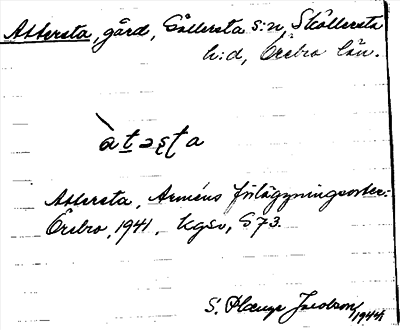 Attersta, gård, Gällersta s:n, Sköllersta
h:d, Örebro län.
àtəʂʈa
Attersta, Arméns förläggningsorter:
Örebro, 1941, kgsv, S 73.
S. Jacobson 1944